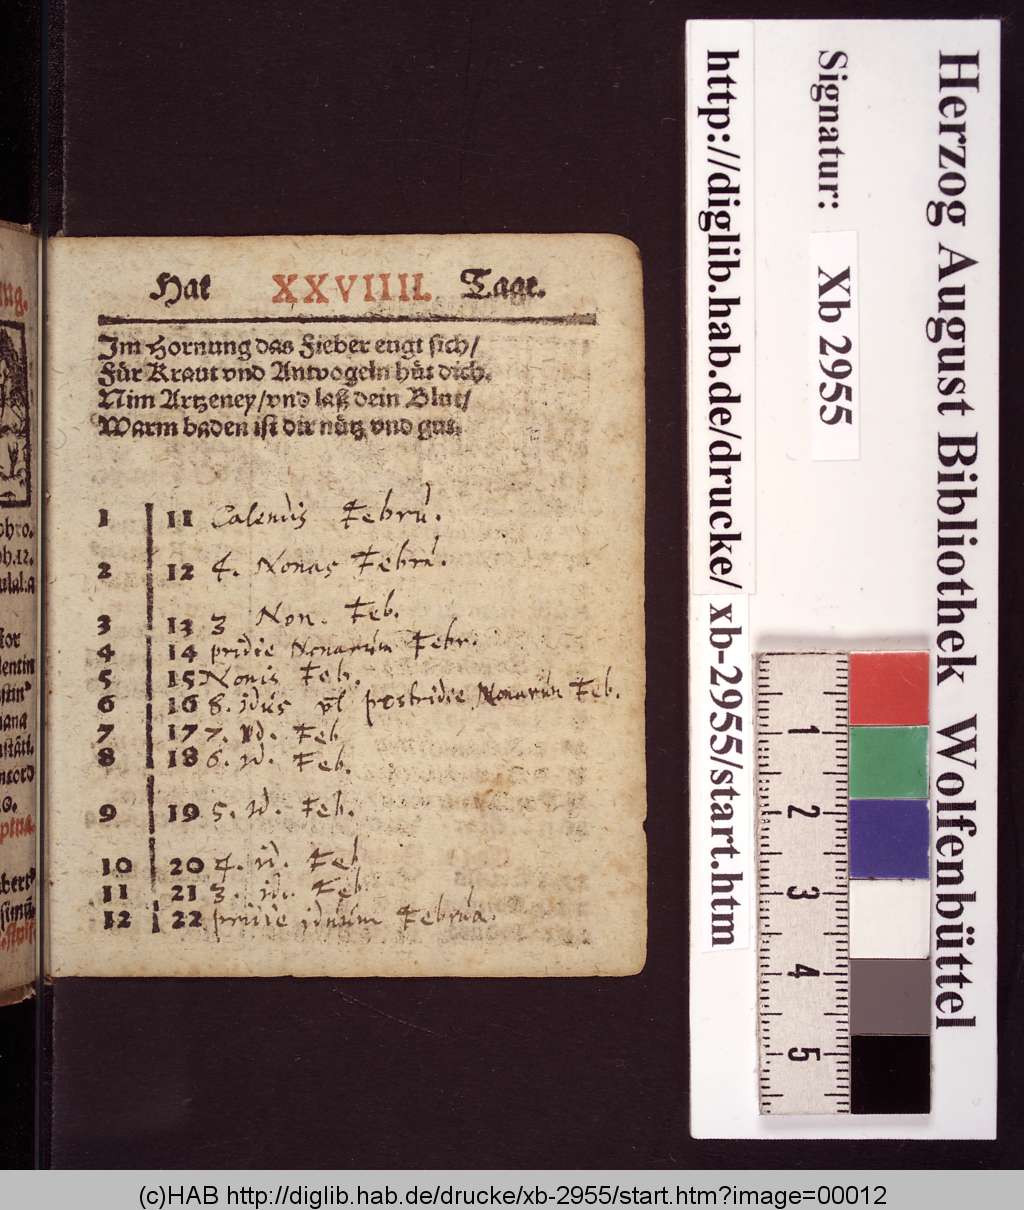 Hat XXVIIII. Tage.
Im Hornung das Fieber eugt sich/
Für Kraut vnd Antvogeln hüt dich.
Nim Artzeney/vnd laß dein Blut/
Warm baden ist dir nütz vnd gut.
1 11 Calendis Febru.
2 12 4. Nonas Febru.
3 13 3 Non. Feb.
4 14 pridie Nonarum Febr.
5 15 Nonis Feb.
6 16 8. jdus vl postridie Nonarum Feb.
7 17 7. id. Feb
8 18 6. id. Feb.
9 19 5. id. Feb.
10 20 4. id. Feb
11 21 3. id. Feb
12 22 pridie jduum Februa.
Herzog August Bibliothek Wolfenbüttel
Signatur: Xb 2955
http://diglib.hab.de/drucke/ xb-2955/start.htm
1
2
3
4
5
(c)HAB http://diglib.hab.de/drucke/xb-2955/start.htm?image=00012